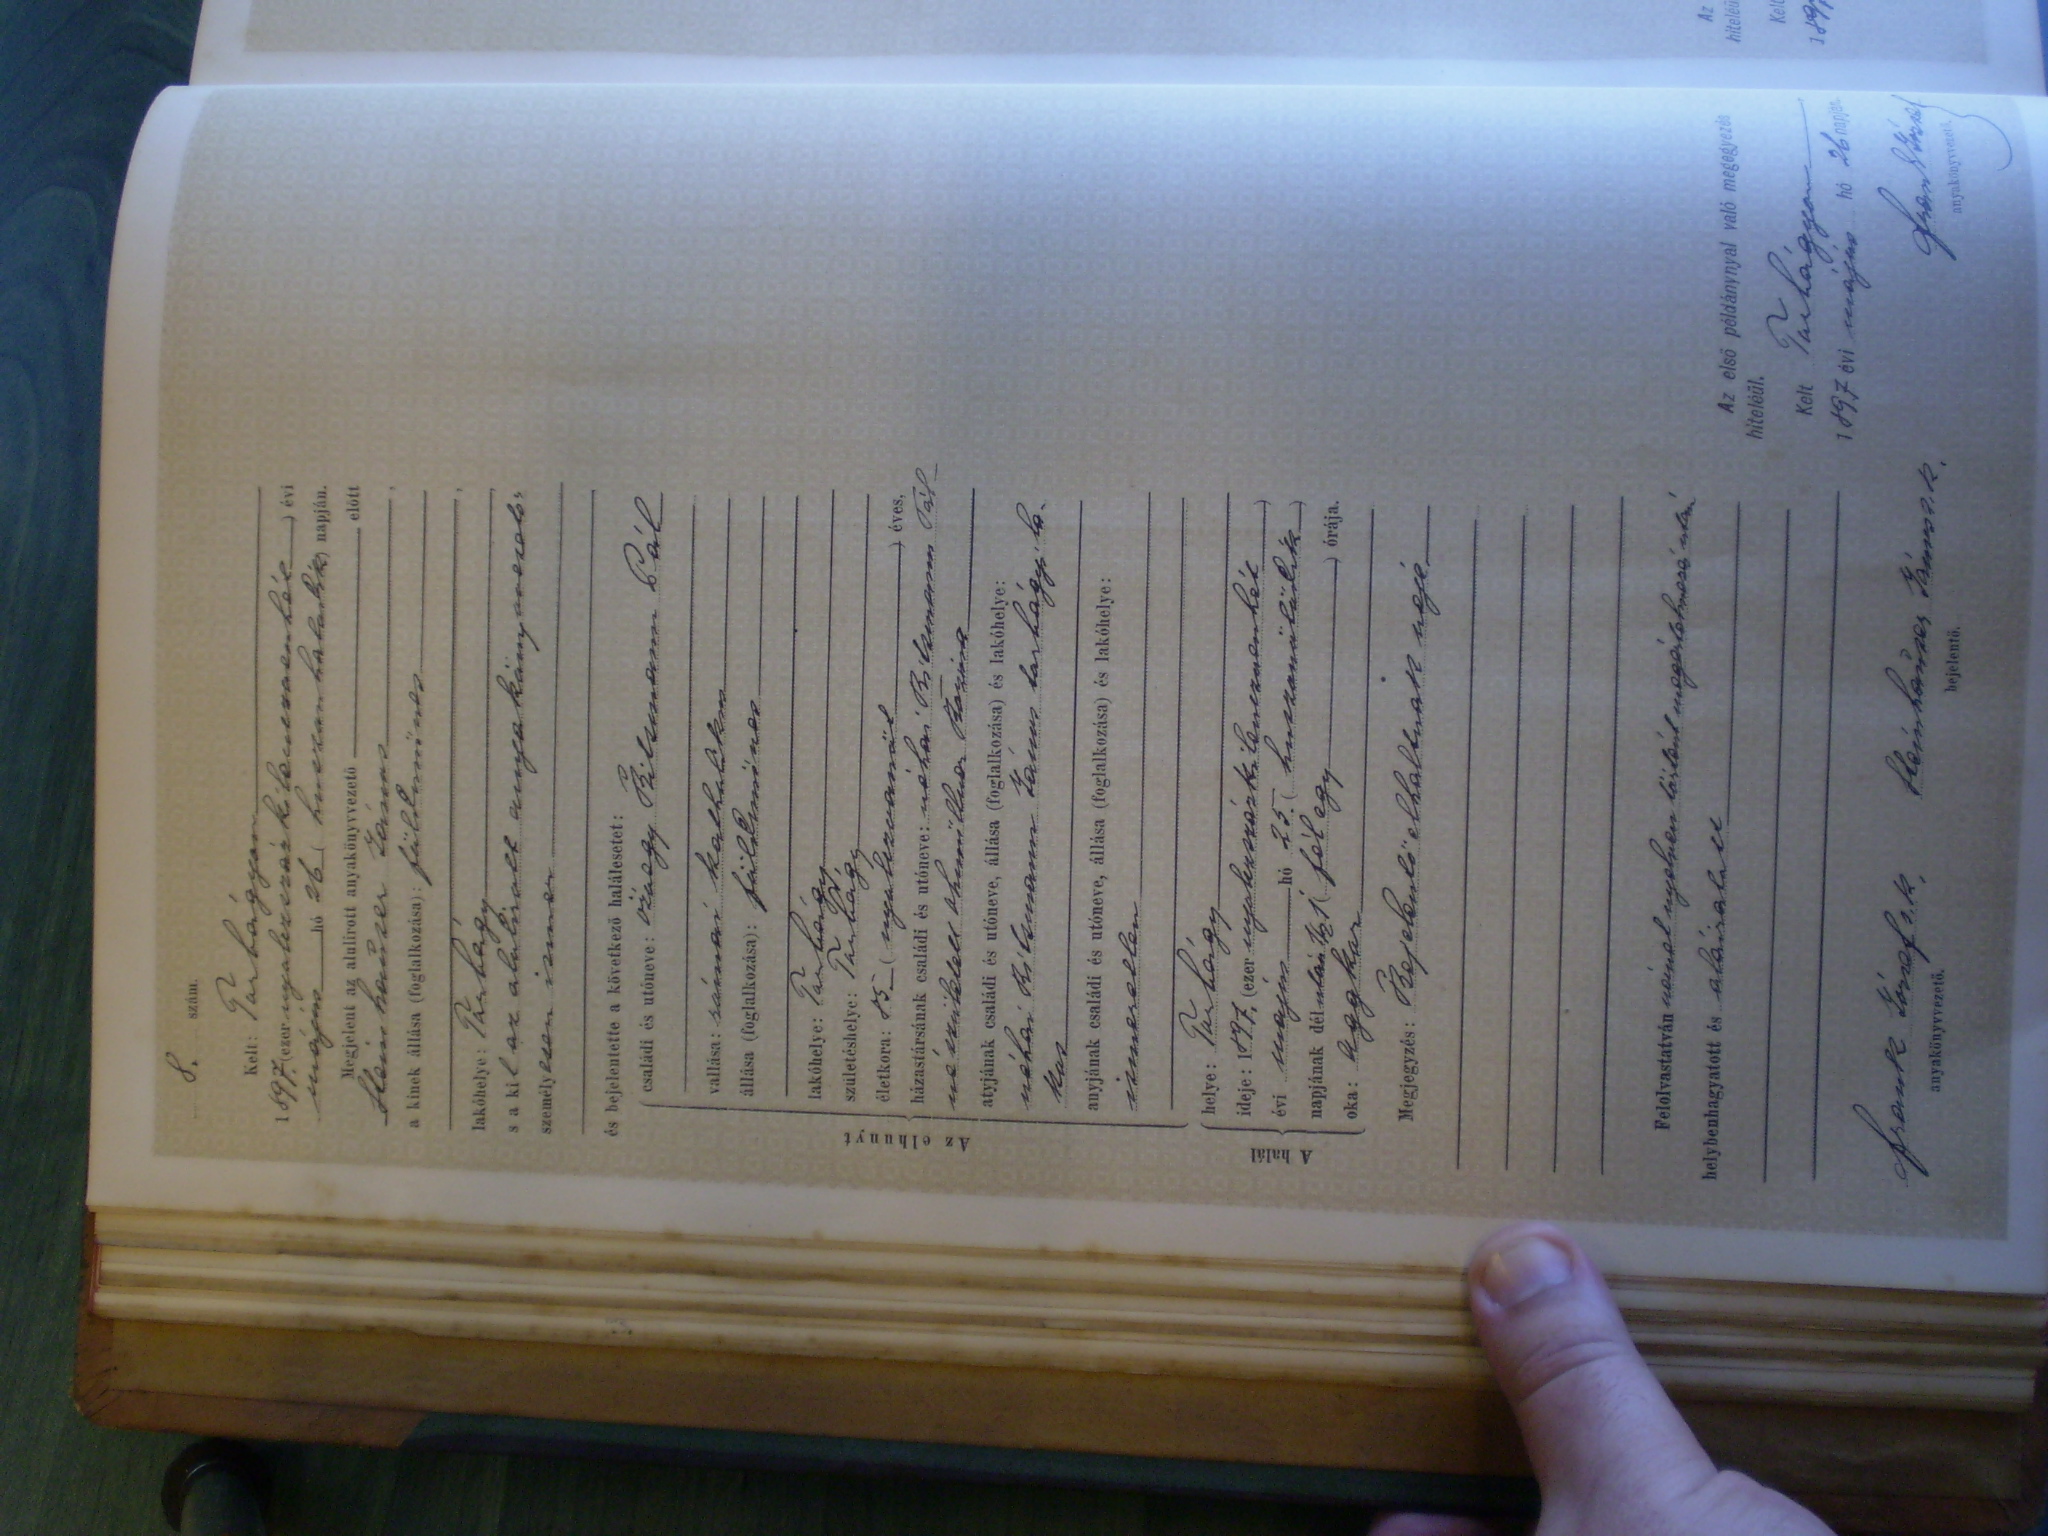 8. szám.
Kelt: Tarhágyon
1897. (ezernyolczszázkilenczvenhét) évi
május hó 26 (huszonhatodik) napján.
Megjelent az alulirott anyakönyvvezető előtt
Steinhauser János,
a kinek állása (foglalkozása): földműves,
lakóhelye: Tarhágy,
s a kit az alulirott anyakönyvvezető
személyesen ismer
és bejelentette a következő halálesetet:
Az elhunyt
családi és utóneve: özvegy Bitzmann Pál
vallása: római katholikus
állása (foglalkozása): földműves
lakóhelye: Tarhágy
születéshelye: Tarhágy
életkora: 85 (nyolczvanöt) éves,
házastársának családi és utóneve: néhai Bitzmann Pál
né született
atyjának családi és utóneve, állása (foglalkozása) és lakóhelye:
néhai Bitzmann János tarhágyi la-
kos
anyjának családi és utóneve, állása (foglalkozása) és lakóhelye:
ismeretlen
A halál
helye: Tarhágy
ideje: 1897. (ezernyolczszázkilenczvenhét)
évi május hó 25. (huszonötödik)
napjának délután 1/2 1 (fél egy) órája.
oka: aggkor
Megjegyzés: Bejelentő elhaltnak veje.
Felolvastatván német nyelven történt megértetése után
helybenhagyatott és aláíratott
Frank József s.k. Steinhauser János s.k.
anyakönyvvezető. bejelentő.
Az első példánnyal való megegyezés
hiteléül.
Kelt Tarhágyon
1897 évi május hó 26 napján.
Frank József
anyakönyvvezető.
Az
hiteléül
Kelt
1897